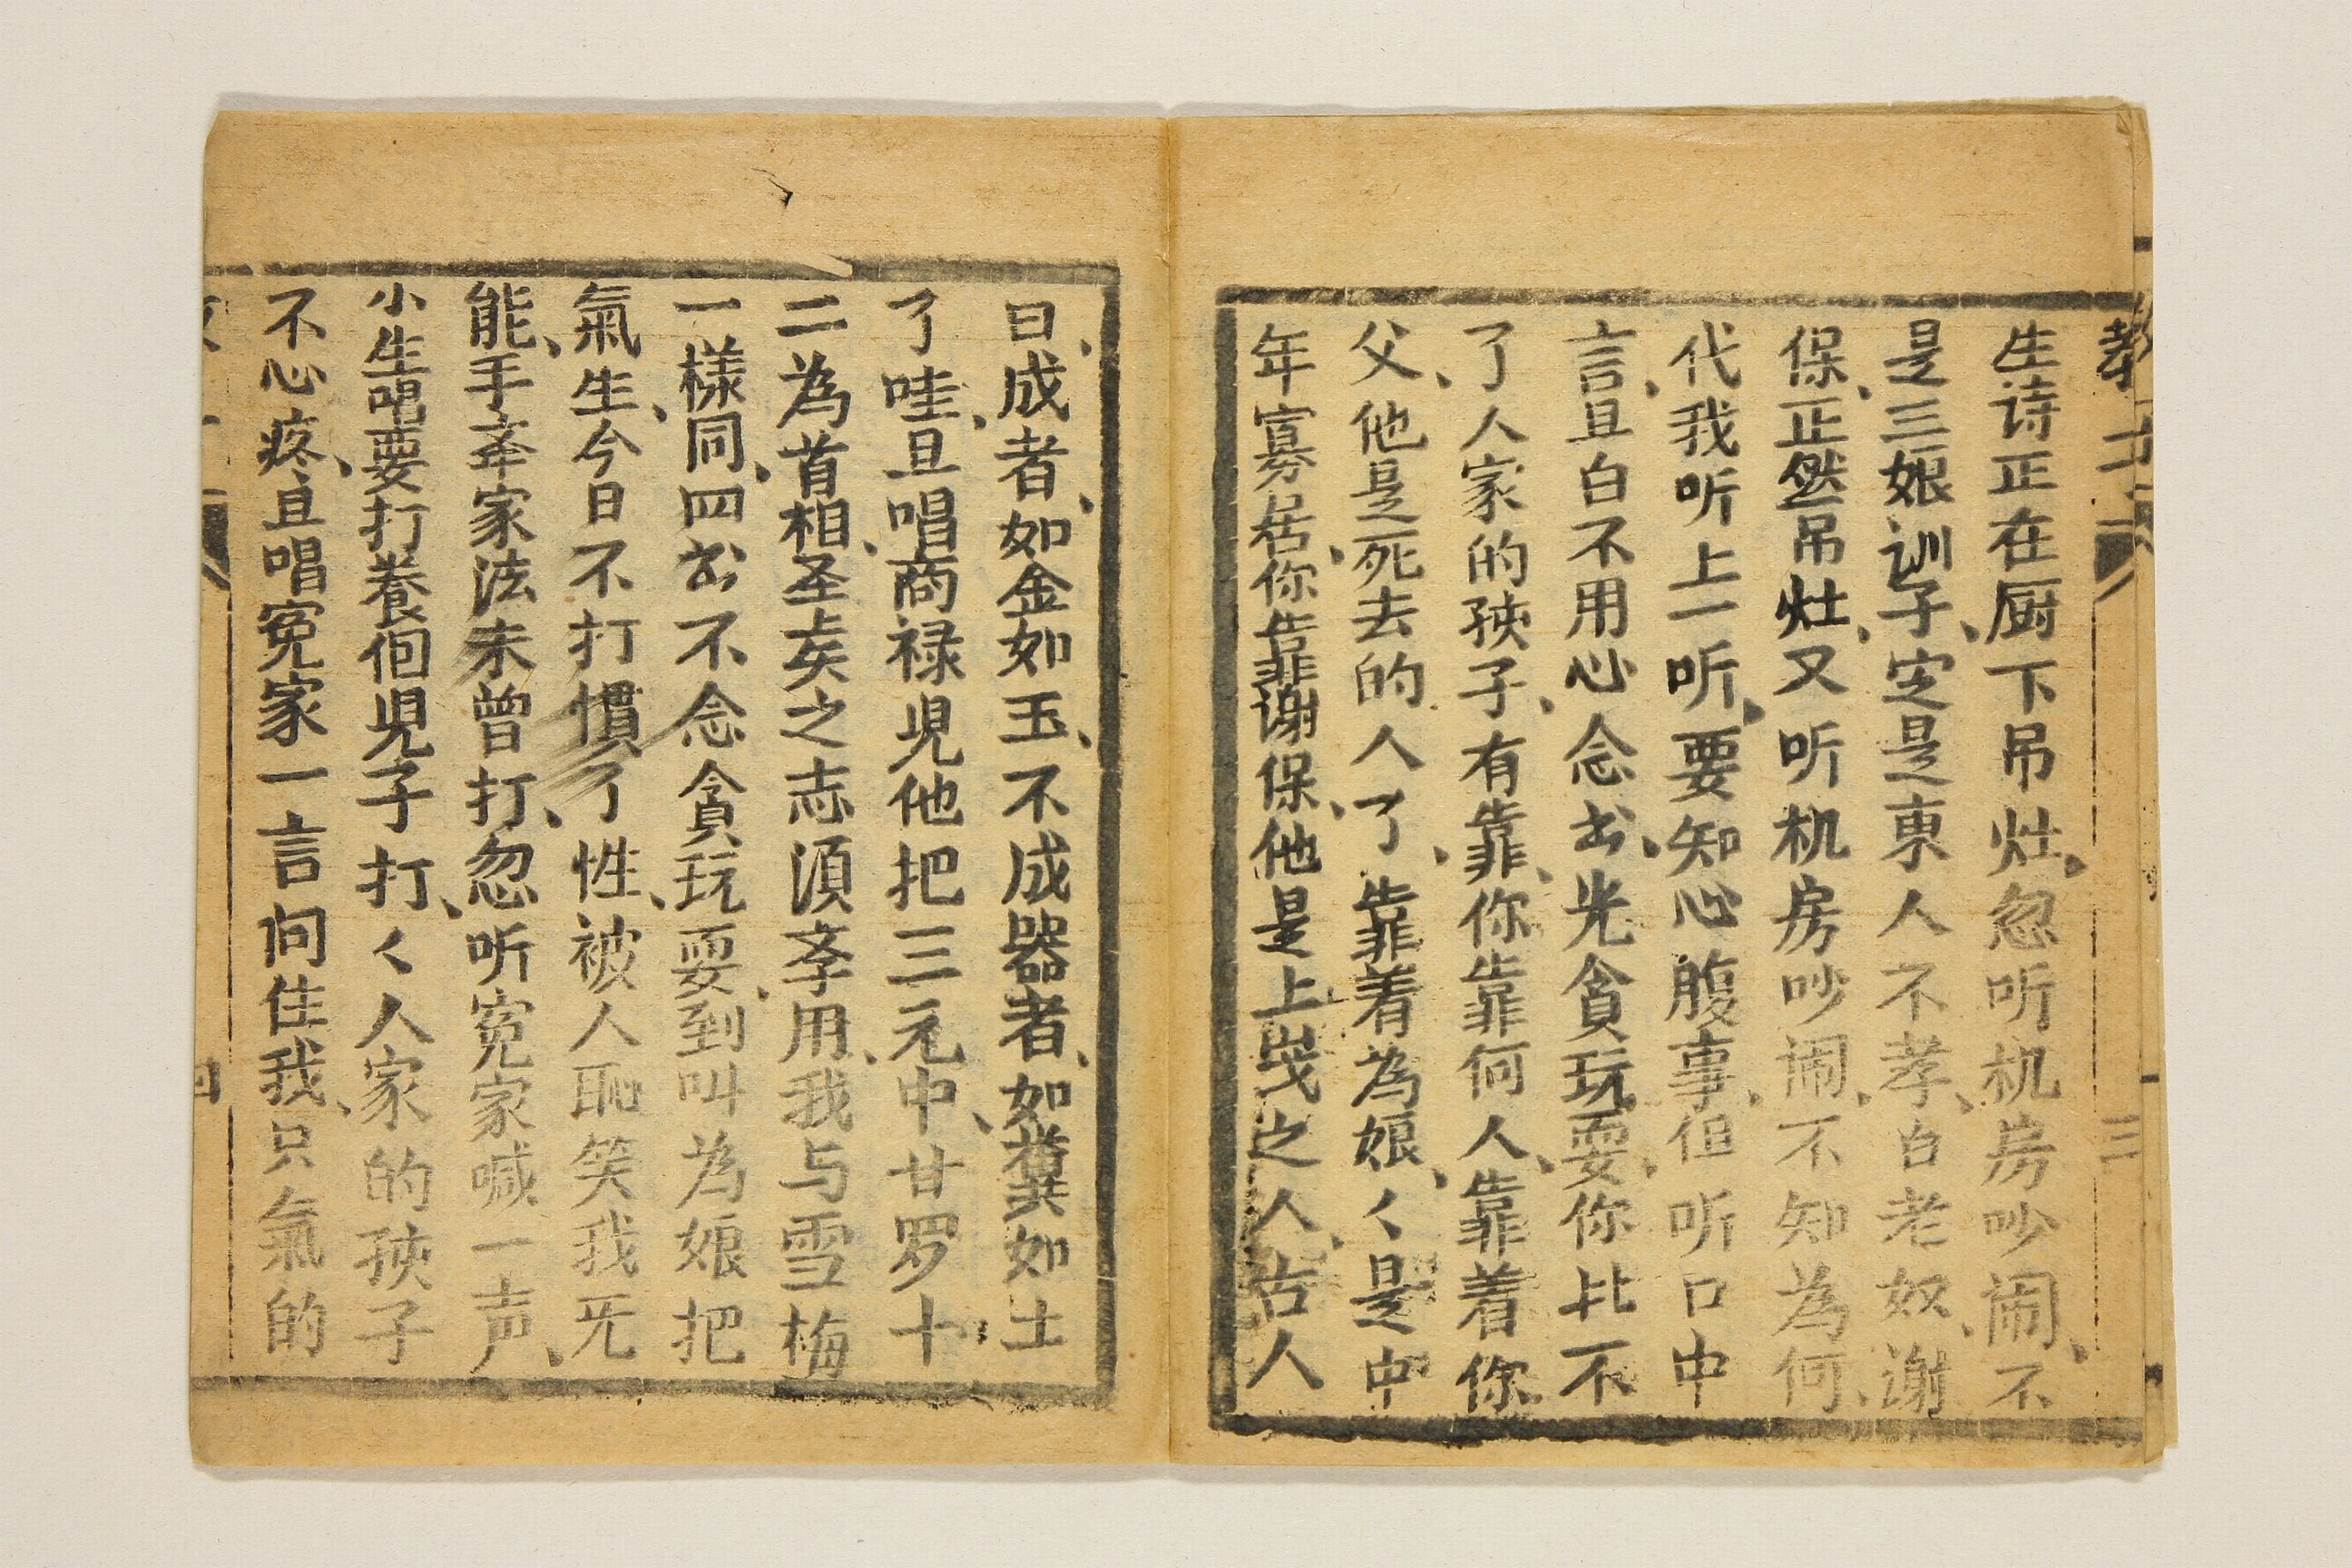 生诗正在厨下吊灶、忽听机房吵闹、不
是三娘训子、定是東人不孝、白老奴、谢
保、正然吊灶、又听机房吵闹、不知為何、
代我听上一听、要知心腹事、但听口中
言、旦白不用心念书、光貪玩耍、你比不
了人家的孩子、有靠、你靠何人、靠着你
父、他是死去的人了、靠着為娘、々是中
年寡居、你靠谢保、他是上岁之人、古人
曰、成者、如金如玉、不成器者、如糞如土
了哇、旦唱商禄児他把三元中、甘罗十
二為首相、圣矣之志須孝用、我与雪梅
一樣同、四书不念貪玩耍、到叫為娘把
氣生、今日不打慣了性、被人恥笑我无
能、手牵家法未曾打、忽听冤家喊一声、
小生唱要打養個児子打、々人家的孩子
不心疼、旦唱冤家一言问住我、只氣的
三